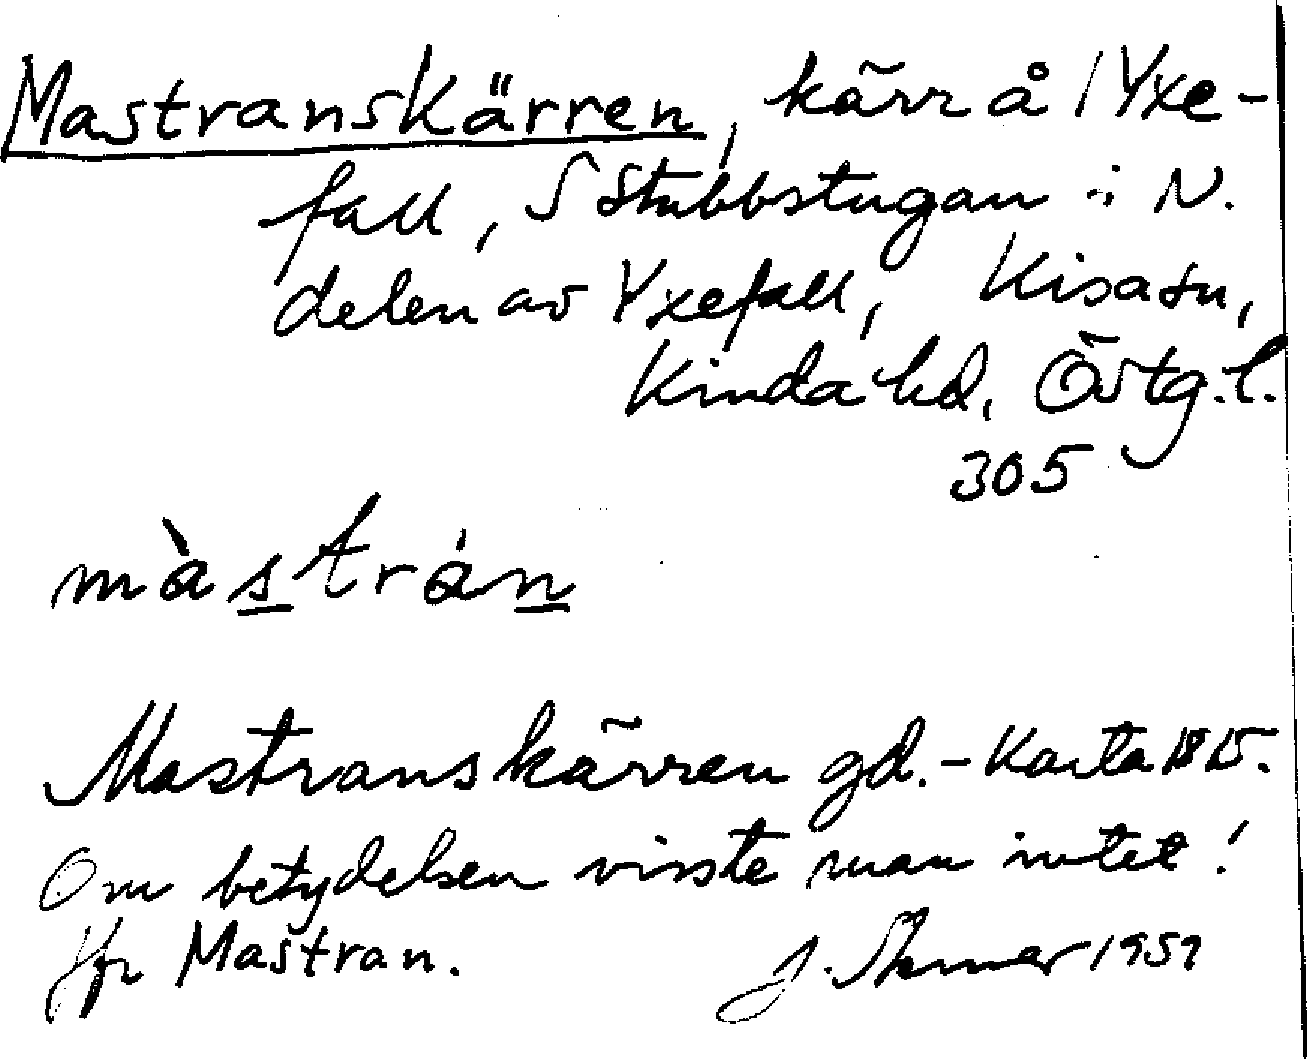 Mastranskärren, kärr å 1 Yxe-
fall, S Stubbstugan i N.
delen av Yxefall, Kisa sn,
Kinda hd, Östg. l.
305
màstrán
Mastranskärren gd. - Karta 1815.
Om betydelsen visste man intet!
Jfr Mastran.
J. 1959